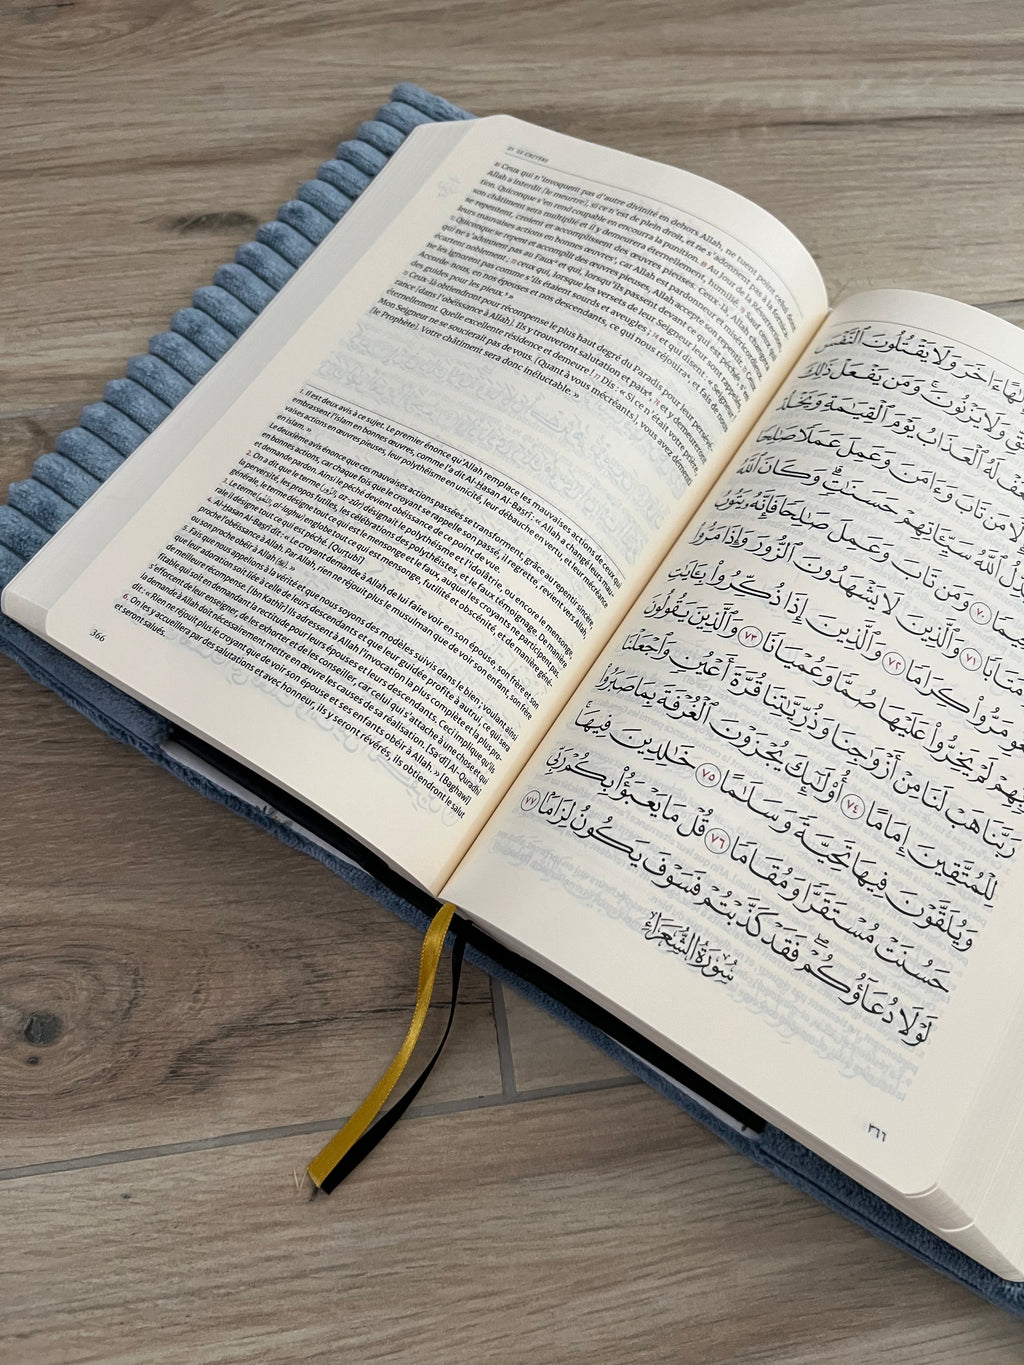 LE CRITÈRE
Ceux qui n'invoquent pas d'autre divinité en dehors d'Allah, ne tuent point celui dont
Allah a interdit [le meurtre], si ce n'est de plein droit, et ne s'adonnent pas à la fornica-
tion. Quiconque s'en rend coupable en encourra la punition. Au Jour de la Résurrection,
son châtiment sera multiplié et il y demeurera éternellement, humilié. Sauf ceux qui
se repentent, croient et accomplissent des œuvres pieuses. Ceux-là, Allah changera
leurs mauvaises actions en bonnes œuvres¹, car Allah est pardonneur et miséricordieux.
Quiconque se repent et accomplit des œuvres pieuses, Allah accepte son repentir. Ceux
qui ne s'adonnent pas au Faux² et qui, lorsqu'ils passent devant ce qui est péchés³, s'en
écartent noblement ; ceux qui, lorsque les versets de leur Seigneur leur sont rappelés,
ne les ignorent pas comme s'ils étaient sourds et aveugles ; 74 et qui disent : « Seigneur !
Accorde-nous, en nos épouses et nos descendants, ce qui nous réjouira⁴, et fais de nous
des guides pour les pieux.⁵ »
75 Ceux-là obtiendront pour récompense le plus haut degré du Paradis pour leur persévé-
rance [dans l'obéissance à Allah]. Ils y trouveront salutation et paix⁶, 76 et y demeureront
éternellement. Quelle excellente résidence et demeure ! 77 Dis : « Si ce n'était votre prière,
Mon Seigneur ne se soucierait pas de vous. [Quant à vous mécréants], vous avez démenti
[le Prophète]. Votre châtiment sera donc inéluctable. »
1. Il est deux avis à ce sujet. Le premier énonce qu'Allah remplace les mauvaises actions de ceux qui
embrassent l'islam en bonnes œuvres, comme l'a dit Al-Hasan Al-Basrî : « Allah a changé leurs mau-
vaises actions en œuvres pieuses, leur polythéisme en unicité, leur débauche en vertu, et leur mécréance
en islam. »
Le deuxième avis énonce que ces mauvaises actions passées se transforment, grâce au repentir sincère,
en bonnes actions, car chaque fois que le croyant se rappelle son passé, il regrette, revient vers Allah,
et demande pardon. Ainsi le péché devient obéissance de ce point de vue.
2. On a dit que le terme (الزُّور), az-zûr) désignait le polythéisme et l'idolâtrie, ou encore le mensonge,
la perversité, les propos futiles, les célébrations des polythéistes, et le faux témoignage. De manière
générale, le terme désigne tout ce qui est mensonge et faux, auquel les croyants ne participent pas.
3. Le terme (اللَّغْو), al-laghw) englobe tout ce qui est mensonge, futilité et obscénité, et de manière géné-
rale il désigne tout ce qui est péché. [Qurtubî]
4. Al-Hasan Al-Basrî dit : « Le croyant demande à Allah de lui faire voir en son épouse, son frère et son
proche l'obéissance à Allah. Par Allah, rien ne réjouit plus le musulman que de voir son enfant, son frère
ou son proche obéir à Allah ﷻ. »
5. Fais que nous appelions à la vérité et que nous soyons des modèles suivis dans le bien ; voulant ainsi
que leur adoration soit liée à celle de leurs descendants et que leur guidée profite à autrui, ce qui sera
de meilleure récompense. [Ibn Kathîr] Ils adressent à Allah l'invocation la plus complète et la plus pro-
fitable qui soit en demandant la rectitude pour leurs épouses et leurs descendants. Ceci implique qu'ils
s'efforcent de leur enseigner, de les exhorter et de les conseiller, car celui qui s'attache à une chose et qui
la demande à Allah doit nécessairement mettre en œuvre les causes de sa réalisation. [Sa'dî] Al-Quradhî
dit : « Rien ne réjouit plus le croyant que de voir son épouse et ses enfants obéir à Allah. » [Baghawî]
6. On les y accueillera par des salutations et avec honneur, ils y seront révérés, ils obtiendront le salut
et seront salués.
366
إِلَٰهًا ءَاخَرَ وَلَا يَقْتُلُونَ ٱلنَّفْسَ
وَلَا يَزْنُونَ ۚ وَمَن يَفْعَلْ ذَٰلِكَ
لَهُ ٱلْعَذَابُ يَوْمَ ٱلْقِيَٰمَةِ وَيَخْلُدْ
مَن تَابَ وَءَامَنَ وَعَمِلَ عَمَلًا صَٰلِحًا
ٱللَّهُ سَيِّـَٔاتِهِمْ حَسَنَٰتٍ ۗ وَكَانَ ٱللَّهُ
٧٠ وَمَن تَابَ وَعَمِلَ صَٰلِحًا فَإِنَّهُۥ يَتُوبُ
مَتَابًا ٧١ وَٱلَّذِينَ لَا يَشْهَدُونَ ٱلزُّورَ وَإِذَا مَرُّوا۟
مَرُّوا۟ كِرَامًا ٧٢ وَٱلَّذِينَ إِذَا ذُكِّرُوا۟ بِـَٔايَٰتِ
رَبِّهِمْ لَمْ يَخِرُّوا۟ عَلَيْهَا صُمًّا وَعُمْيَانًا ٧٣ وَٱلَّذِينَ يَقُولُونَ
رَبَّنَا هَبْ لَنَا مِنْ أَزْوَٰجِنَا وَذُرِّيَّٰتِنَا قُرَّةَ أَعْيُنٍ وَٱجْعَلْنَا
لِلْمُتَّقِينَ إِمَامًا ٧٤ أُو۟لَٰٓئِكَ يُجْزَوْنَ ٱلْغُرْفَةَ بِمَا صَبَرُوا۟
وَيُلَقَّوْنَ فِيهَا تَحِيَّةً وَسَلَٰمًا ٧٥ خَٰلِدِينَ فِيهَا ۚ
حَسُنَتْ مُسْتَقَرًّا وَمُقَامًا ٧٦ قُلْ مَا يَعْبَؤُا۟ بِكُمْ رَبِّى
لَوْلَا دُعَآؤُكُمْ ۖ فَقَدْ كَذَّبْتُمْ فَسَوْفَ يَكُونُ لِزَامًۢا ٧٧
سُورَةُ الشُّعَرَاءِ
٣٦٦